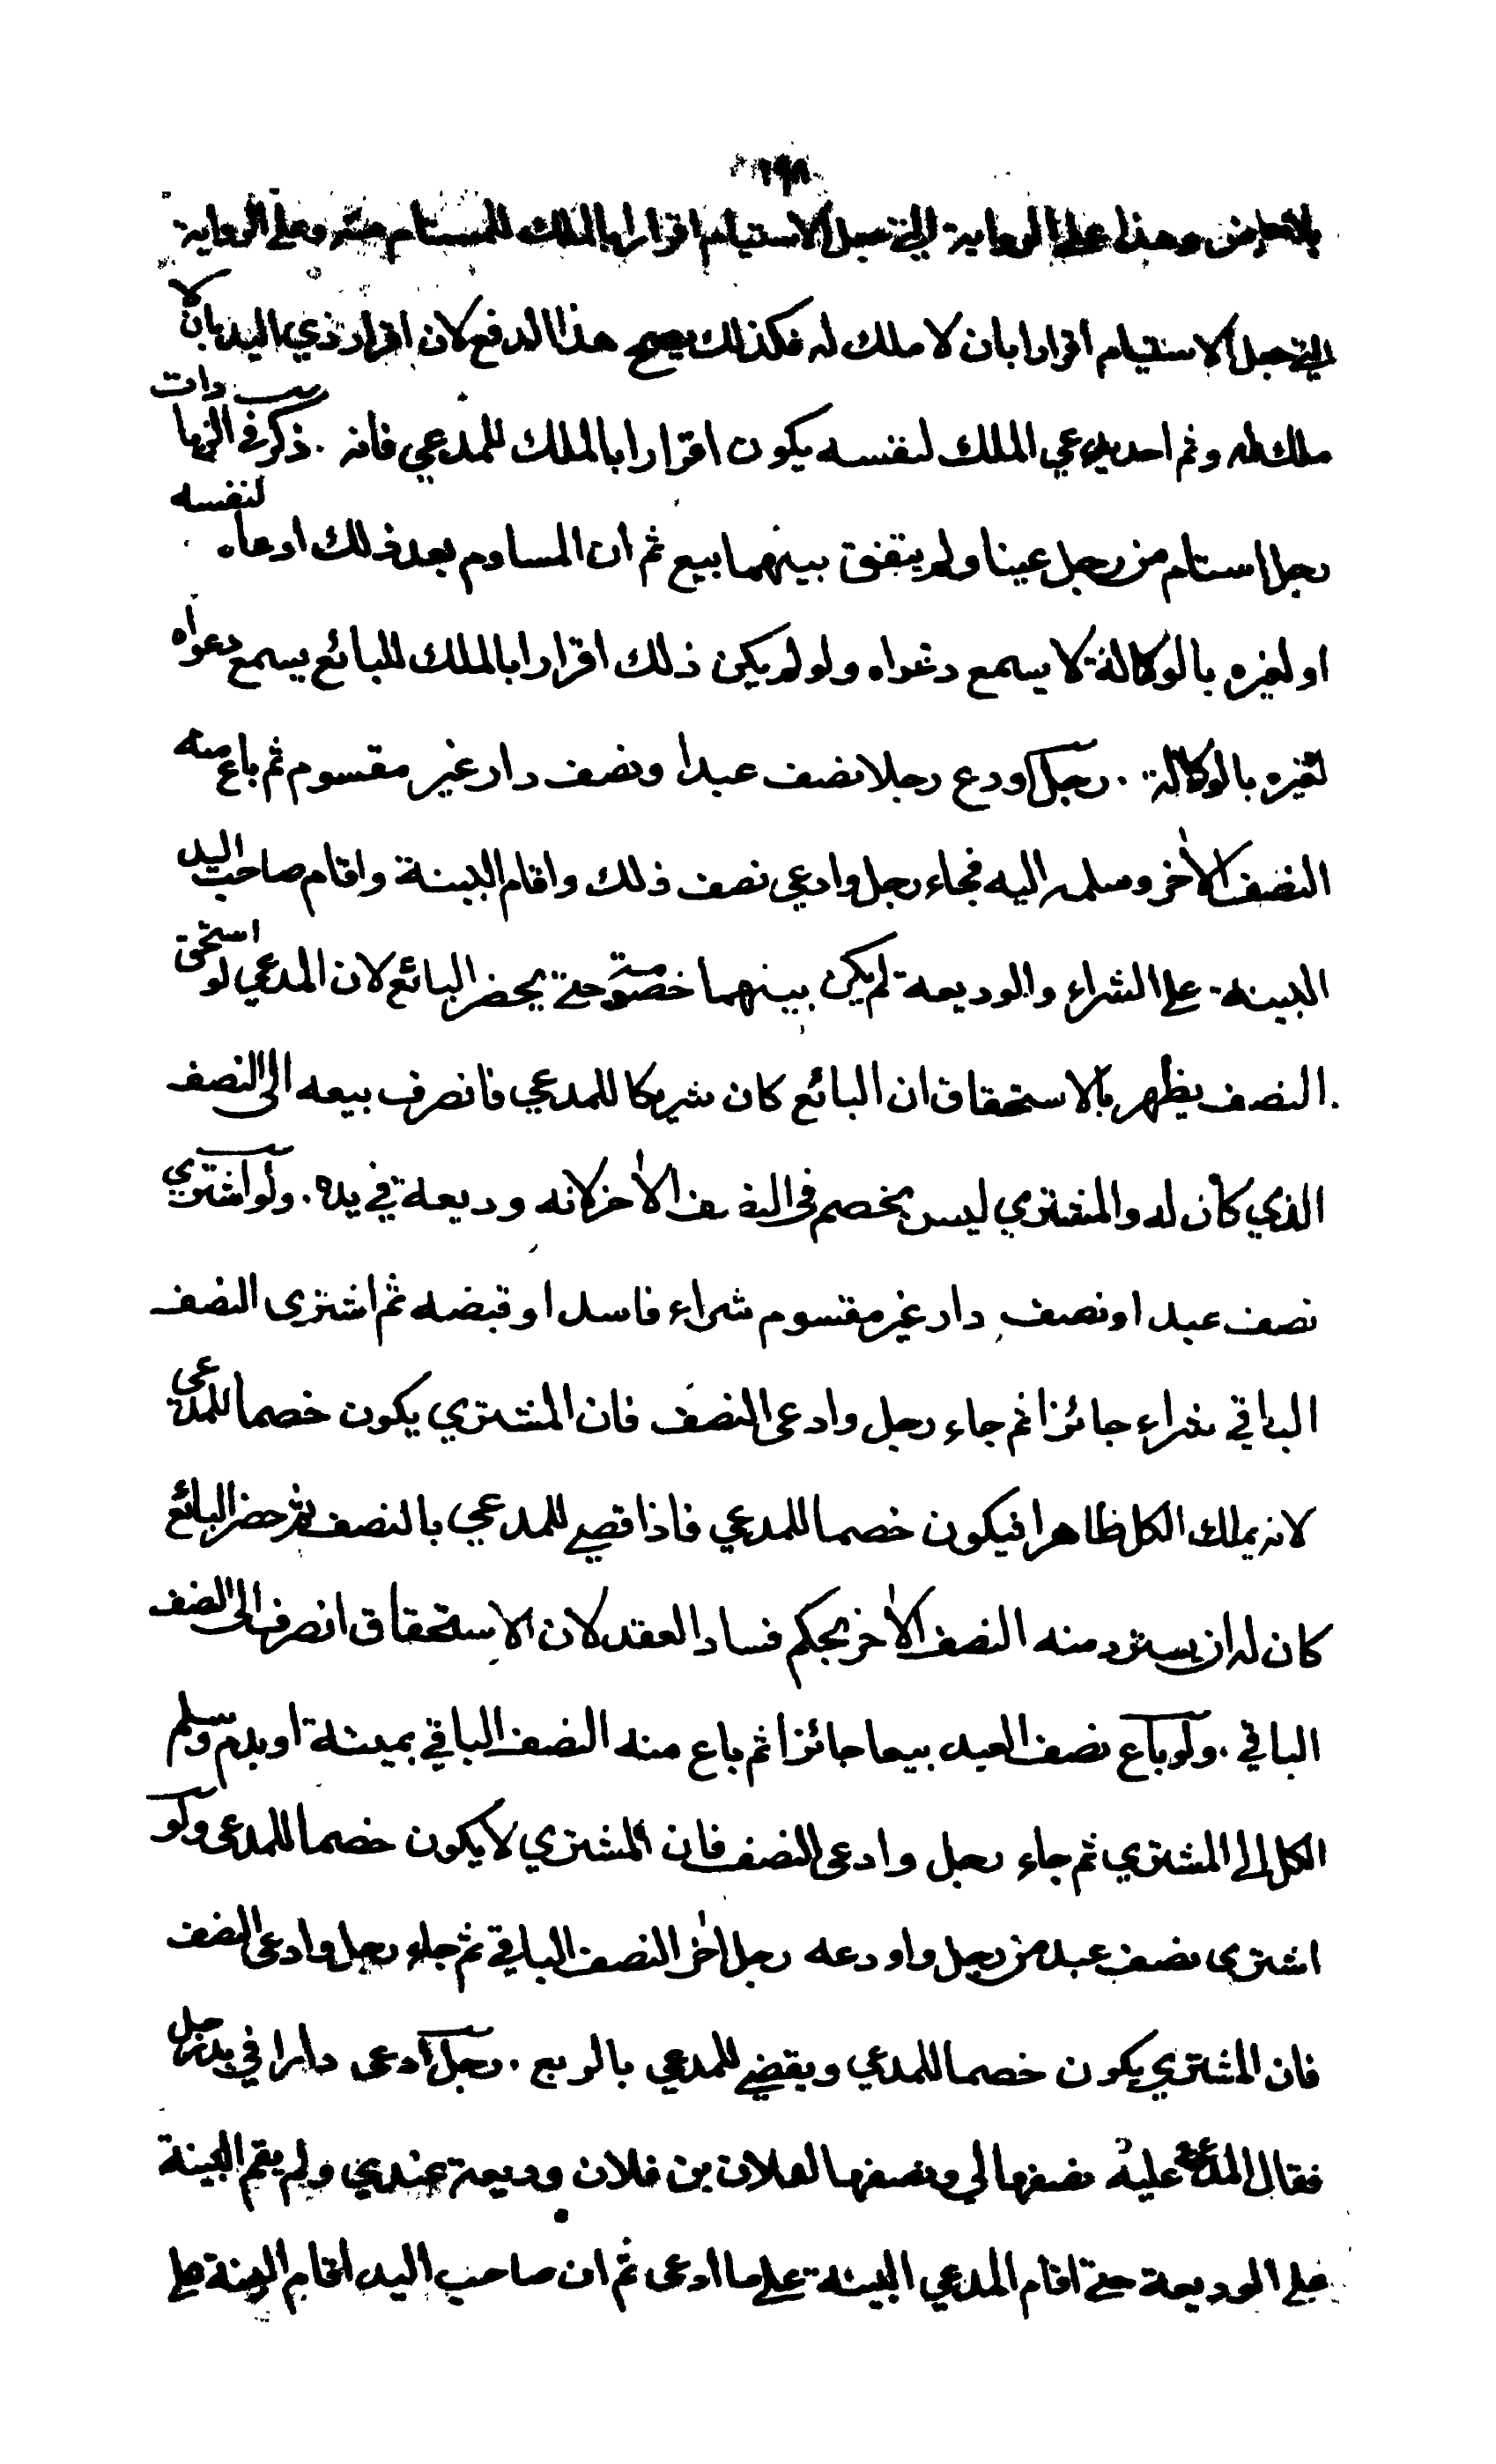 ١٩٨
وهذا على الرواية التي جعل الاستيام اقرارا بالملك للمستام منه وعلى الرواية
التي جعل الاستيام اقرارا بان لا ملك له فكذلك يصح هذا الدفع لان اقرار ذي اليد بان لا
ملك له وثم احد يدعي الملك لنفسه يكون اقرارا بالملك للمدعي فانه . ذكر في الزيادات
رجل استام من رجل عينا ولم يتفق بينهما بيع ثم ان المساوم بعد ذلك ادعاه لنفسه
او لغيره بالوكالة لا يسمع دعواه ولو لم يكن ذلك اقرارا بالملك للبائع يسمع دعواه
لغيره بالوكالة . رجل اودع رجلا نصف عبدا ونصف دار غير مقسوم ثم باع منه
النصف الآخر وسلمه اليه فجاء رجل وادعى نصف ذلك واقام البينة واقام صاحب اليد
البينة على الشراء والوديعة لم يكن بينهما خصومة حتى يحضر البائع لان المدعي لو استحق
النصف يظهر بالاستحقاق ان البائع كان شريكا للمدعي فانصرف بيعه الى النصف
الذي كان له والمشتري ليس بخصم في النصف الآخر لانه وديعة في يده . ولو اشترى
نصف عبد او نصف دار غير مقسوم شراء فاسدا وقبضه ثم اشترى النصف
الباقي شراء جائزا ثم جاء رجل وادعى النصف فان المشتري يكون خصما للمدعي
لانه يملك الكل ظاهرا فيكون خصما للمدعي فاذا قضي للمدعي بالنصف ثم حضر البائع
كان له ان يسترد منه النصف الآخر بحكم فساد العقد لان الاستحقاق انصرف الى النصف
الباقي . ولو باع نصف العبد بيعا جائزا ثم باع منه النصف الباقي بميتة او بدم وسلم
الكل الى المشتري ثم جاء رجل وادعى النصف فان المشتري لا يكون خصما للمدعي ولو
اشترى نصف عبد من رجل واودعه رجل آخر النصف الباقي ثم جاء رجل وادعى النصف
فان المشتري يكون خصما للمدعي ويقضي للمدعي بالربع . رجل ادعى دارا في يد رجل
فقال المدعى عليه نصفها لي ونصفها لفلان بن فلان وديعة عندي ولم يقم البينة
على الوديعة حتى اقام المدعي البينة على ما ادعى ثم ان صاحب اليد اقام البينة على